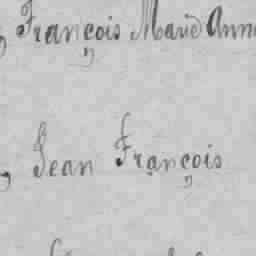 , François Marie Anne
, Jean François